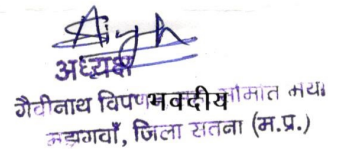 अध्यक्ष
गैवीनाथ विपणन भवदीय
मझगवाँ, जिला सतना (म.प्र.)